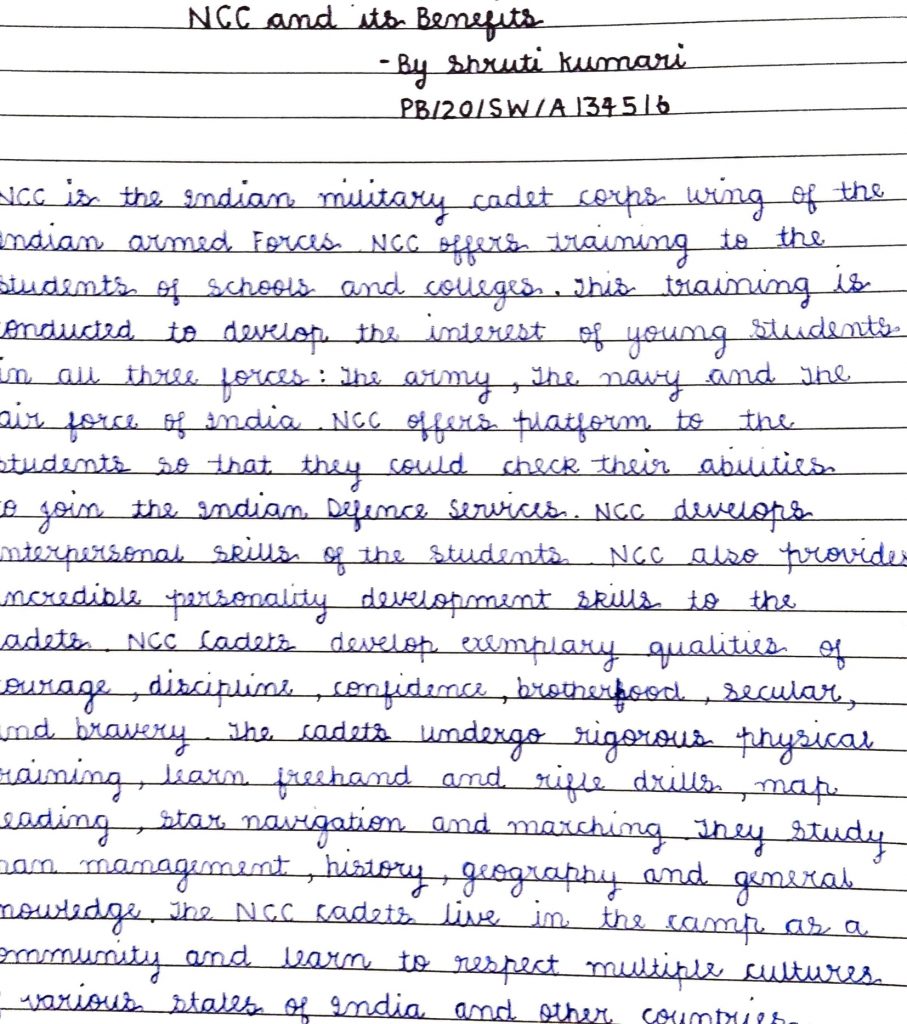 NCC and its Benefits
- By Shruti Kumari
PB/20/SW/A134516
NCC is the Indian military cadet corps wing of the
Indian armed Forces. NCC offers training to the
students of schools and colleges. This training is
conducted to develop the interest of young students
in all three forces : The army, The navy and The
air force of India. NCC offers platform to the
students so that they could check their abilities
to join the Indian Defence Services. NCC develops
interpersonal skills of the students. NCC also provides
incredible personality development skills to the
cadets. NCC Cadets develop exemplary qualities of
courage, discipline, confidence, brotherhood, secular,
and bravery. The cadets undergo rigorous physical
training, learn freehand and rifle drills, map
reading, star navigation and marching. They study
man management, history, geography and general
knowledge. The NCC cadets live in the camp as a
community and learn to respect multiple cultures
of various states of India and other countries.